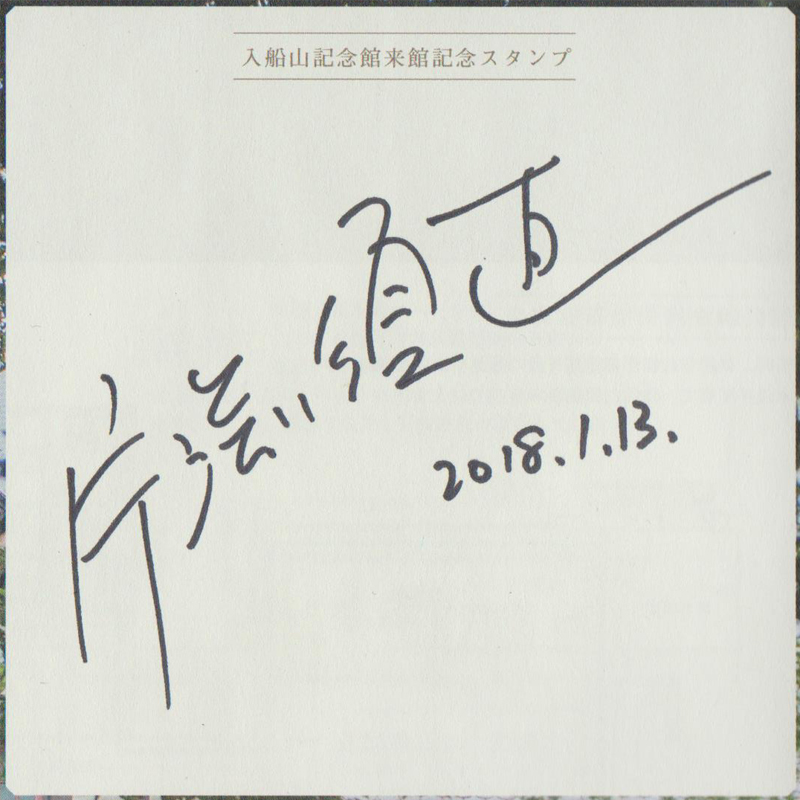 入船山記念館来館記念スタンプ
片渕須直
2018.1.13.